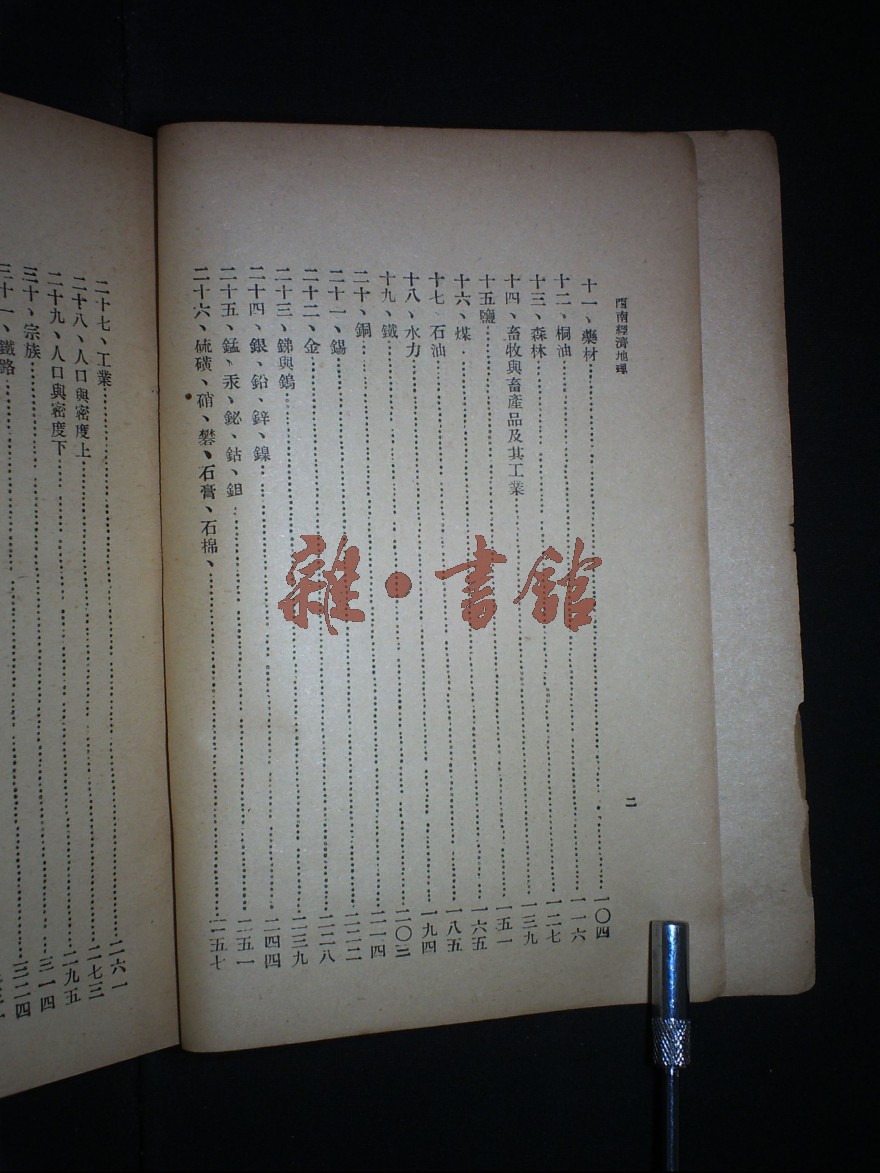 西南經濟地理
二
十一、藥材……一〇四
十二、桐油……一一六
十三、森林……一二七
十四、畜牧與畜產品及其工業……一三九
十五鹽……一五一
十六、煤……一六五
十七、石油……一八五
十八、水力……一九四
十九、鐵……二〇三
二十、銅……二一四
二十一、錫……二二二
二十二、金……二二八
二十三、銻與鎢……二三九
二十四、銀、鉛、鋅、鎳……二四四
二十五、錳、汞、鉍、鈷、鉬……二五一
二十六、硫磺、硝、礬、石膏、石棉、……二五七
二十七、工業……二六一
二十八、人口與密度上……二七三
二十九、人口與密度下……二九五
三十、宗族……三一四
三十一、鐵路……三二四
雜·書館